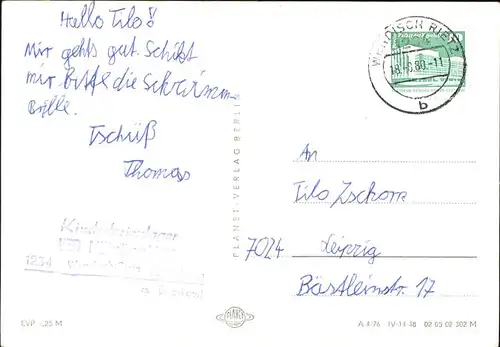 Hallo Tilo!
Mir gehts gut. Schikt
mir Bitte die Schwimm-
brille.
Tschüß
Thomas
Kinderferienlager
1234
WENDISCH RIETZ
18.-8.80.-11
b
PLANET-VERLAG BERLIN
An
Tilo Zschorn
7024 Leipzig
Bästleinstr. 17
EVP -,25 M
PLANET
A 4/76 IV-14-48 02 05 02 302 M